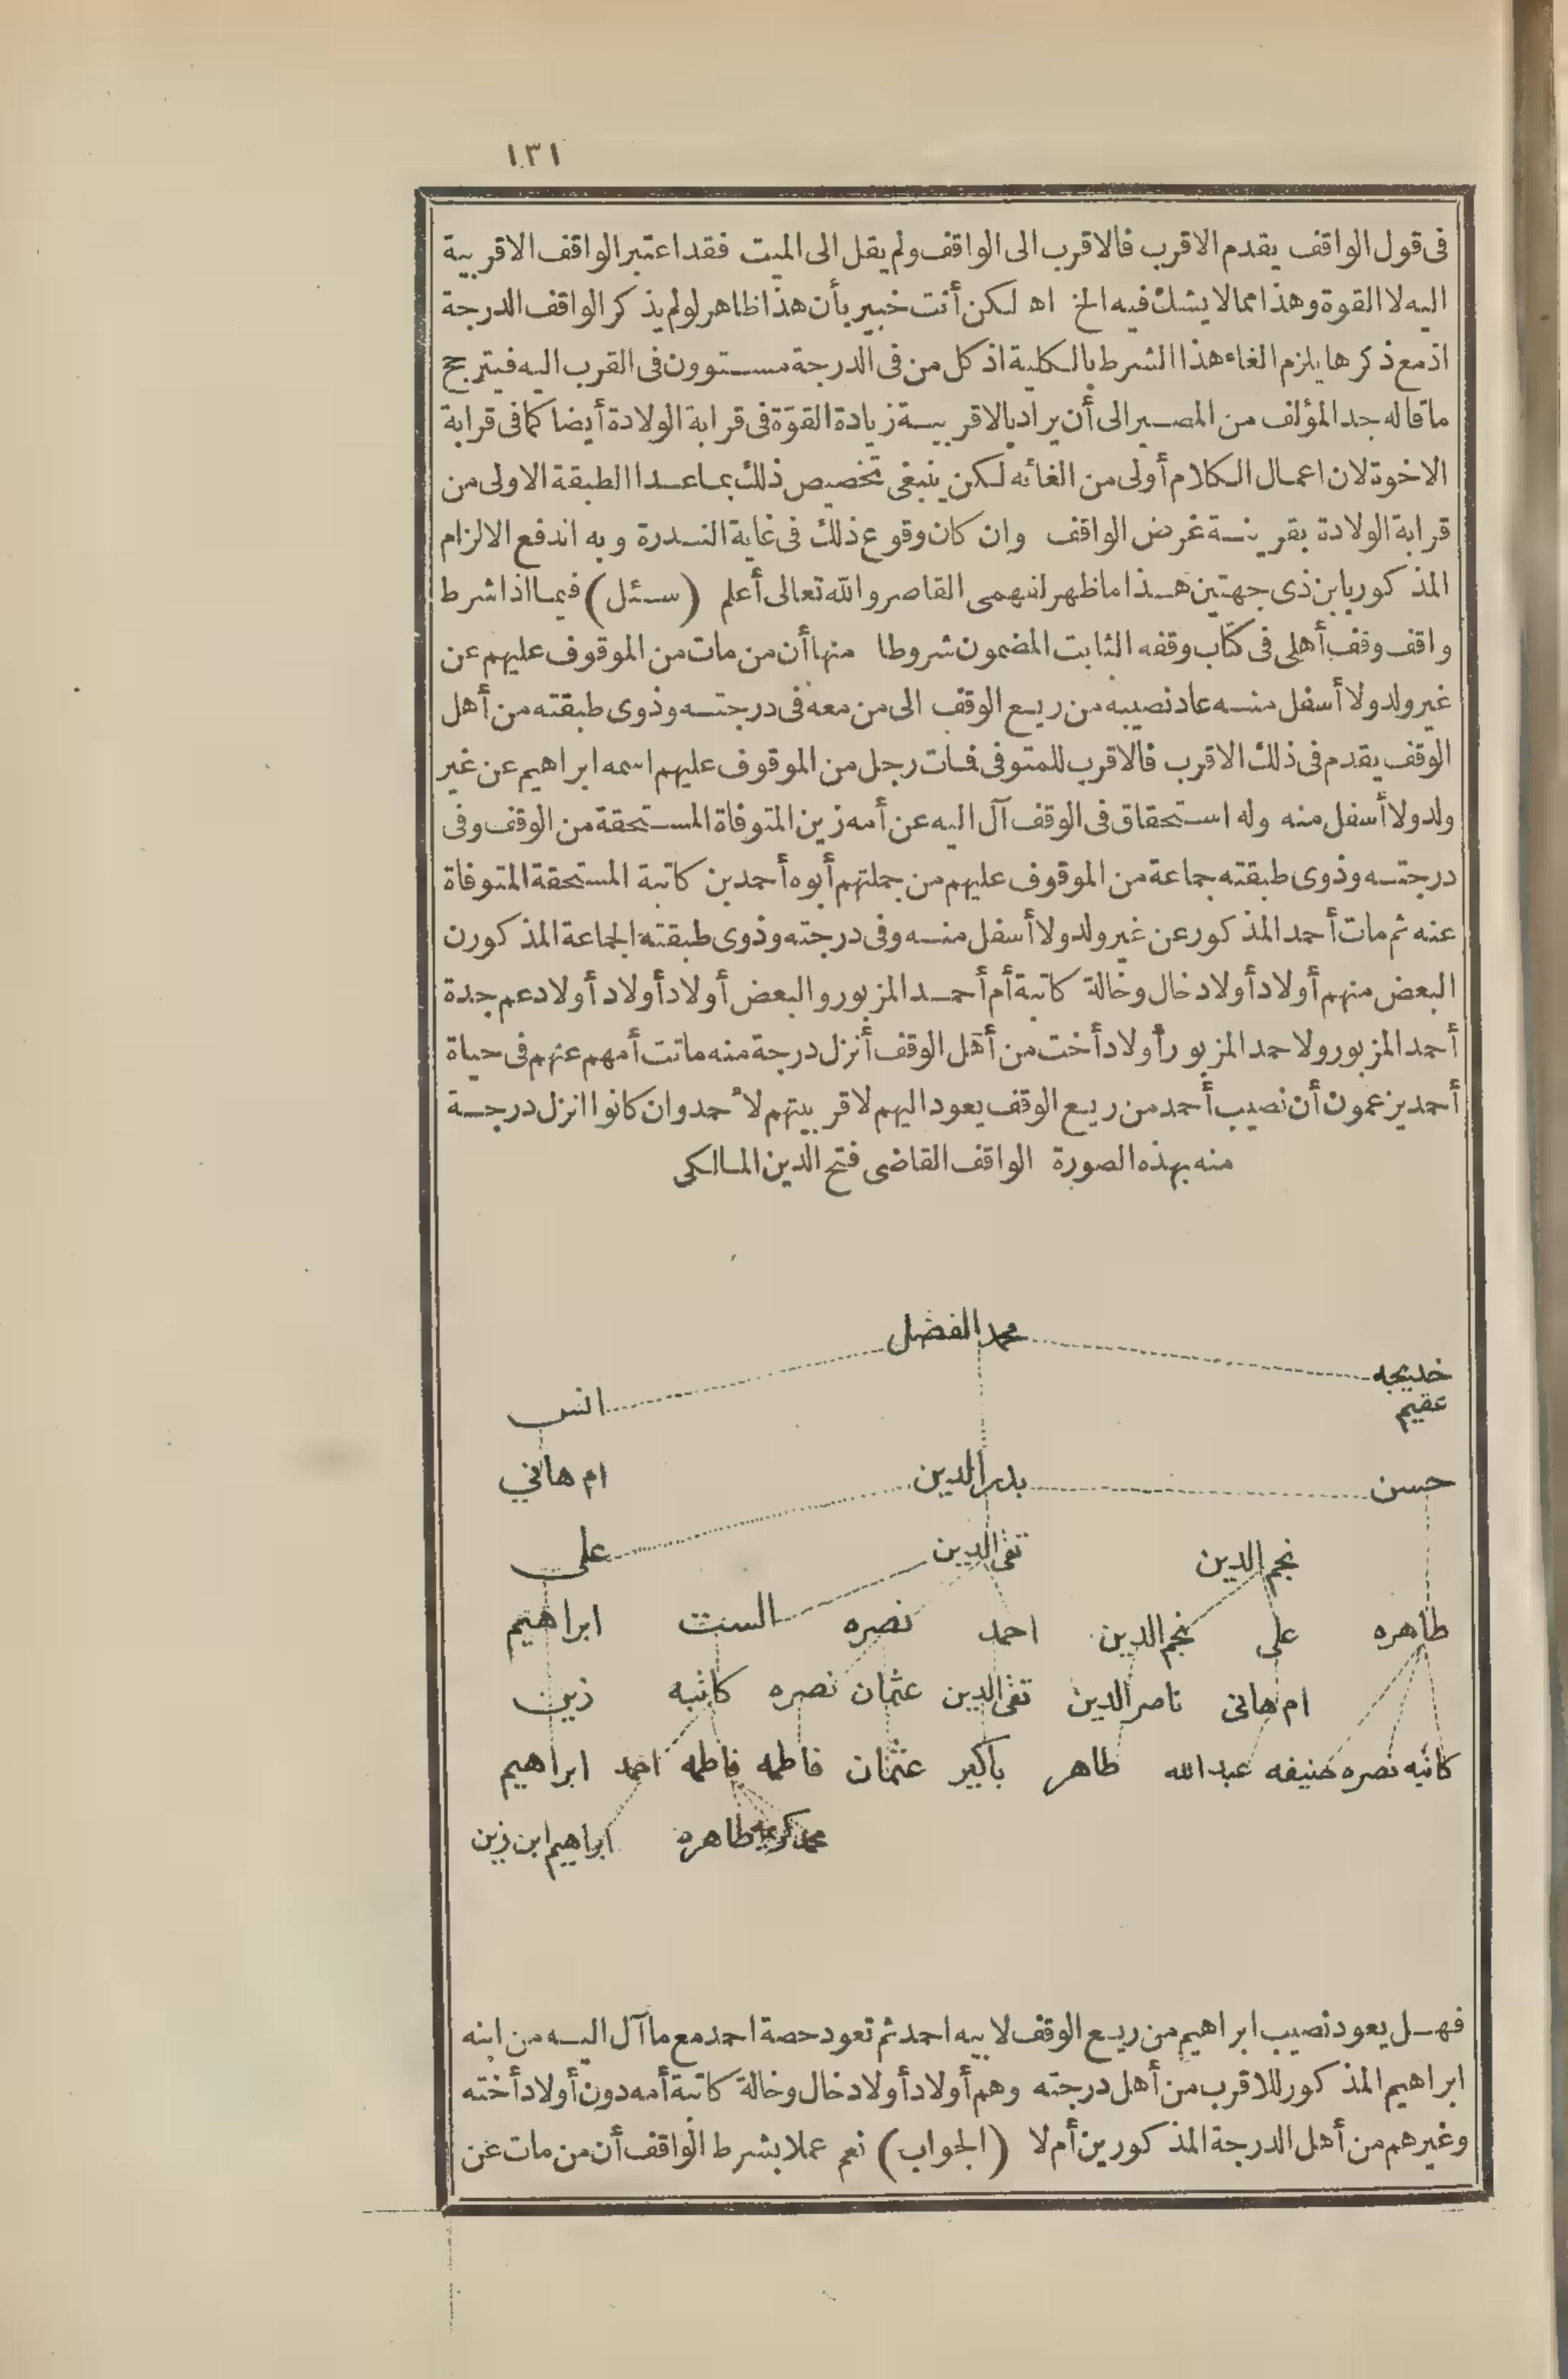 ١٣١
فى قول الواقف يقدم الاقرب فالاقرب الى الواقف ولم يقل الى الميت فقد اعتبر الواقف الاقربية
اليه لا القوة وهذا مما لا يشك فيه الخ اه لكن أنت خبير بأن هذا ظاهر لو لم يذكر الواقف الدرجة
اذ مع ذكرها يلزم الغاء هذا الشرط بالكلية اذ كل من فى الدرجة مستوون فى القرب اليه فيترجح
ما قاله جد المؤلف من المصير الى أن يراد بالاقربية زيادة القوّة فى قرابة الولادة أيضا كما فى قرابة
الاخوة لان اعمال الكلام أولى من الغائه لكن ينبغى تخصيص ذلك بما عدا الطبقة الاولى من
قرابة الولادة بقرينة غرض الواقف وان كان وقوع ذلك فى غاية الندرة وبه اندفع الالزام
المذكور بابن ذى جهتين هذا ما ظهر لفهمى القاصر والله تعالى أعلم (سئل) فيما اذا شرط
واقف وقف أهلى فى كتاب وقفه الثابت المضمون شروطا منها أن من مات من الموقوف عليهم عن
غير ولد ولا أسفل منه عاد نصيبه من ريع الوقف الى من معه فى درجته وذوى طبقته من أهل
الوقف يقدم فى ذلك الاقرب فالاقرب للمتوفى فمات رجل من الموقوف عليهم اسمه ابراهيم عن غير
ولد ولا أسفل منه وله استحقاق فى الوقف آل اليه عن أمه زين المتوفاة المستحقة من الوقف وفى
درجته وذوى طبقته جماعة من الموقوف عليهم من جملتهم أبوه أحمد بن كاتبة المستحقة المتوفاة
عنه ثم مات أحمد المذكور عن غير ولد ولا أسفل منه وفى درجته وذوى طبقته الجماعة المذكورن
البعض منهم أولاد أولاد خال وخالة كاتبة أم أحمد المزبور والبعض أولاد أولاد أولاد عم جدة
أحمد المزبور ولاحمد المزبور أولاد أخت من أهل الوقف أنزل درجة منه ماتت أمهم عنهم فى حياة
أحمد يزعمون أن نصيب أحمد من ريع الوقف يعود اليهم لاقربيتهم لأحمد وان كانوا انزل درجة
منه بهذه الصورة الواقف القاضى فتح الدين المالكى
محمد الفضل
خديجه
عقيم
انس
ام هاني
بدر الدين
حسن
على
تقى الدين
نجم الدين
طاهره على نجم الدين احمد نصره الست ابراهيم
ام هانى ناصر الدين تقى الدين عثمان نصره كاتبه زين
كاتبه نصره حنيفه عبد الله طاهر باكير عثمان فاطمه فاطمه احمد ابراهيم
محمد كريمه طاهره ابراهيم ابن زين
فهل يعود نصيب ابراهيم من ريع الوقف لابيه احمد ثم تعود حصة احمد مع ما آل اليه من ابنه
ابراهيم المذكور للاقرب من أهل درجته وهم أولاد أولاد خال وخالة كاتبة أمه دون أولاد أخته
وغيرهم من أهل الدرجة المذكورين أم لا (الجواب) نعم عملا بشرط الواقف أن من مات عن